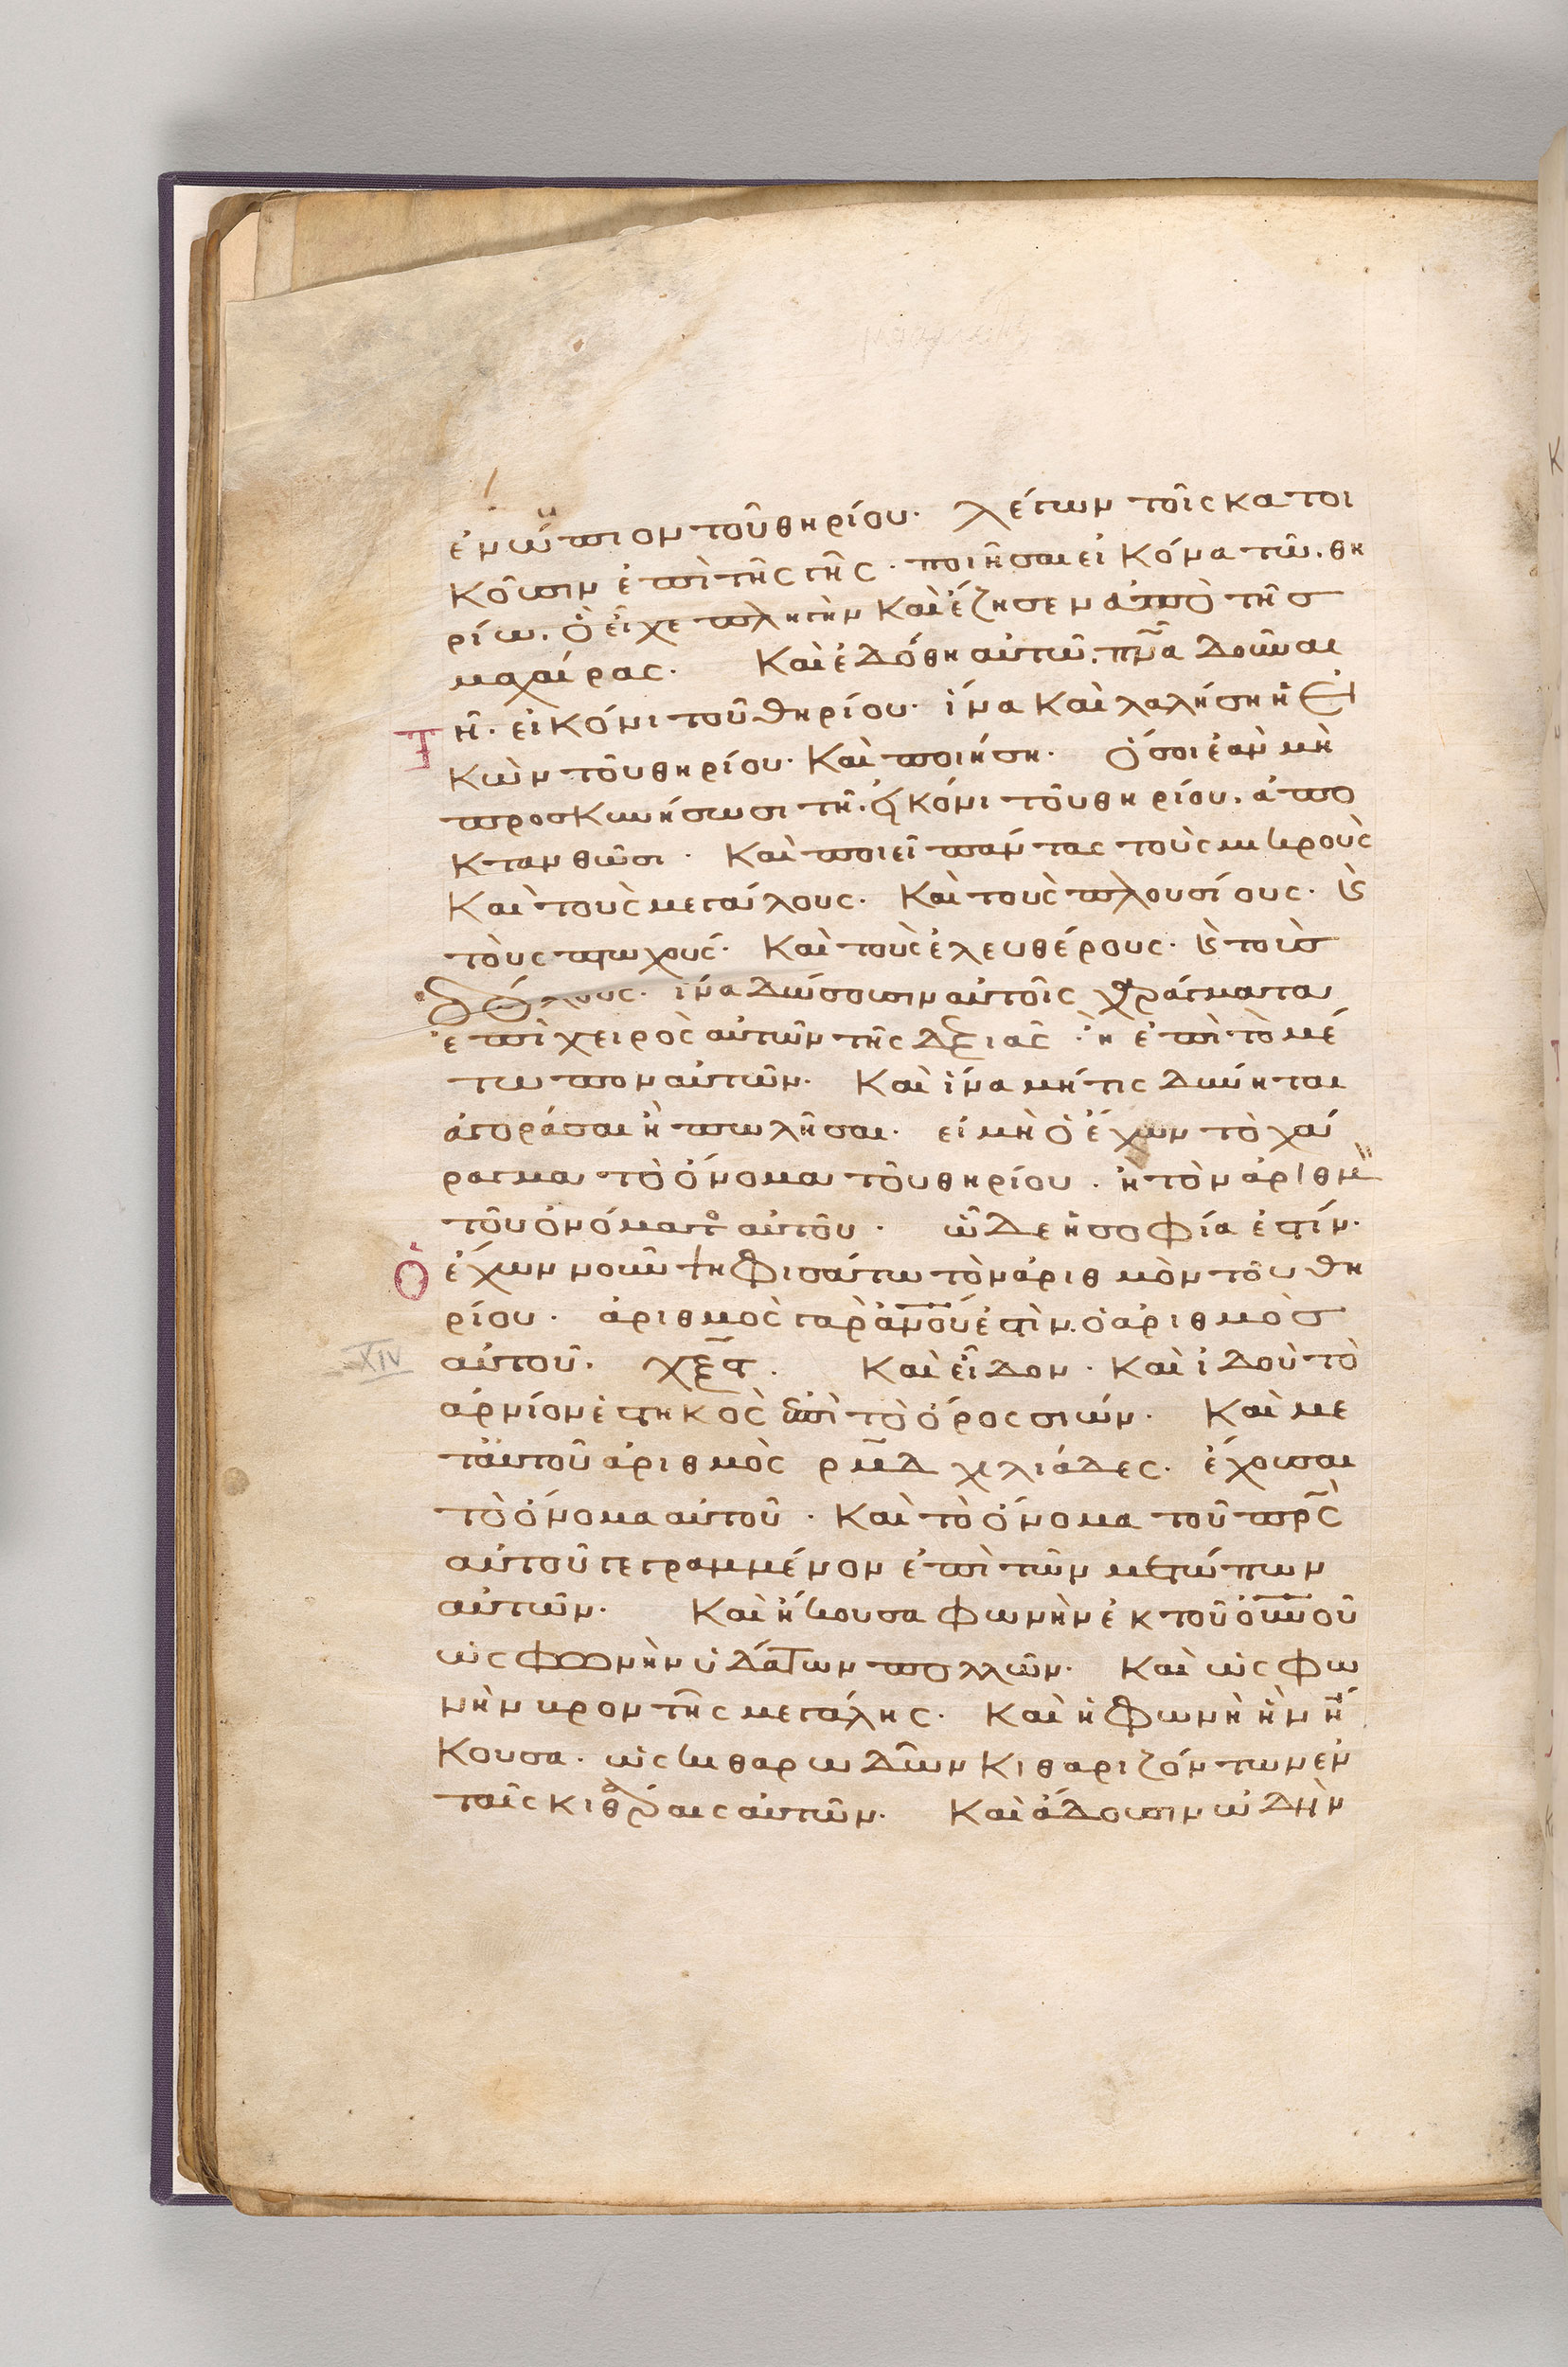 ἐνώπιον τοῦ θηρίου· λέγων τοῖς κατοι
κοῦσιν ἐπὶ τῆς γῆς· ποιῆσαι εἰκόνα τῶ θη
ρίω. ὃ εἶχε πληγὴν καὶ ἔζησεν ἀπὸ τῆς
μαχαίρας· Καὶ ἐδόθη αὐτῶ. πνᾶ δοῦναι
τῆ· εἰκόνι τοῦ θηρίου· ἵνα καὶ λαλήση ἡ εἰ
κὼν τοῦ θηρίου· Καὶ ποιήση· ὅσοι ἐὰν μὴ
προσκυνήσωσι τῆ. εἰκόνι τοῦ θηρίου. ἀπο
κτανθῶσι· Καὶ ποιεῖ πάντας τοὺς μικροὺς
Καὶ τοὺς μεγάλους. Καὶ τοὺς πλουσίους· ϗ
τοὺς πτωχούς· Καὶ τοὺς ἐλευθέρους· ϗ τοὺς
δούλους· ἵνα δώσουσιν αὐτοῖς χαράγματα
ἐπὶ χειρὸς αὐτῶν τῆς δεξιᾶς· ἢ ἐπὶ τὸ μέ
τωπον αὐτῶν· Καὶ ἵνα μή τις δύνηται
ἀγοράσαι ἢ πωλῆσαι· εἰ μὴ ὁ ἔχων τὸ χά
ραγμα τὸ ὄνομα τοῦ θηρίου· ἢ τὸν ἀριθμ
τοῦ ὀνόματο αὐτοῦ· ὧδε ἡ σοφία ἐστίν·
ὁ ἔχων νοῦν ψηφισάτω τὸν ἀριθμὸν τοῦ θη
ρίου· ἀριθμὸς γὰρ ἀνοῦ ἐστὶν. ὁ ἀριθμὸς
αὐτοῦ· χξϛ. Καὶ εἶδον· Καὶ ἰδοὺ τὸ
XIV
ἀρνίον ἑστηκὸς ἐπὶ τὸ ὄρος σιών· Καὶ με
τ αὐτοῦ ἀριθμὸς ρμδ χιλιάδες· ἔχουσαι
τὸ ὄνομα αὐτοῦ· Καὶ τὸ ὄνομα τοῦ πρς
αὐτοῦ γεγραμμένον ἐπὶ τῶν μετώπων
αὐτῶν· Καὶ ἤκουσα φωνὴν ἐκ τοῦ οὐνοῦ
ὡς φωνὴν ὑδάτων πολλῶν· Καὶ ὡς φω
νὴν βροντῆς μεγάλης· Καὶ ἡ φωνὴ ἣν ἤ
κουσα· ὡς κιθαρωδῶν κιθαριζόντων ἐν
ταῖς κιθάραις αὐτῶν· Καὶ ἄδουσιν ὠδὴν